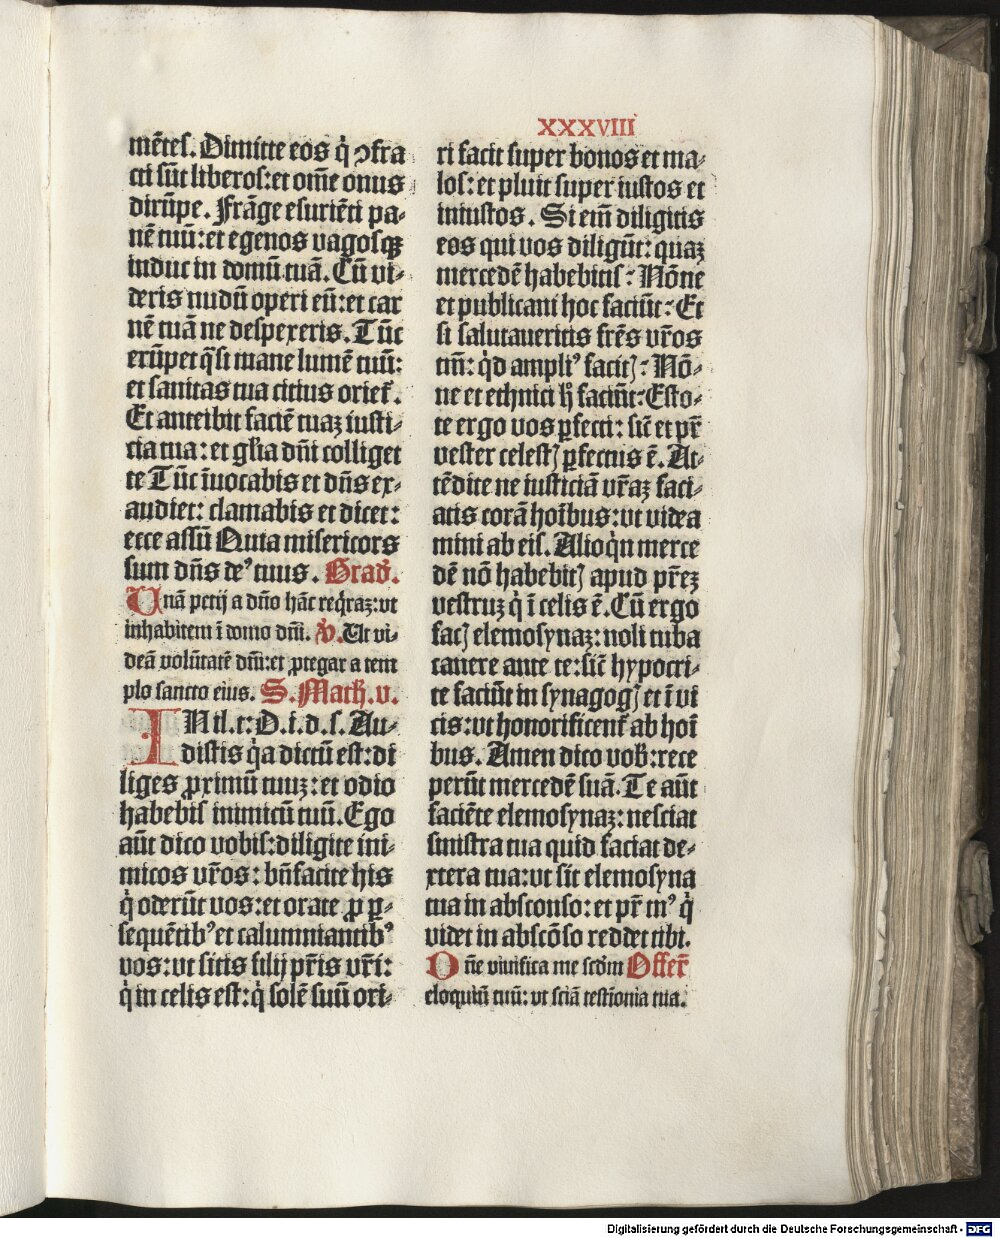 XXXVIII
mētes. Dimitte eos q̇ ↄfra
cti sūt liberos: et om̄e onus
dirūpe. Frāge esuriēti pa-
nē tuū: et egenos vagosqꝫ
induc in domū tuā. Cū vi-
deris nudū operi eū: et car
nē tuā ne despexeris. Tūc
erūpet q̄si mane lumē tuū:
et sanitas tua citius orietᷣ.
Et anteibit faciē tuaꝫ iusti-
cia tua: et gl̄ia dn̄i colliget
te Tūc īuocabis et dn̄s ex-
audiet: clamabis et dicet:
ecce assū Quia misericors
sum dn̄s deꝰ tuus. Grad̄.
Unā petij a dn̄o hāc req̇raꝫ: vt
inhabitem ī domo dn̄i. v̄. Ut vi-
deā volūtatē dn̄i: et ꝓtegar a tem
plo sancto eius. S. Math̄. v.
INtl. t: D. i. d. s. Au-
distis q̇a dictū est: di
liges ꝓximū tuuꝫ: et odio
habebis inimicū tuū. Ego
aūt dico vobis: diligite ini-
micos vr̄os: bn̄facite his
q̇ oderūt vos: et orate ꝓ ꝑ-
sequētibꝰ et calumniantibꝰ
vos: vt sitis filij pr̄is vr̄i:
q̇ in celis est: q̇ solē suū ori-
ri facit super bonos et ma-
los: et pluit super iustos et
iniustos. Si eīm diligitis
eos qui vos diligūt: quaꝫ
mercedē habebitis? Nōne
et publicani hoc faciūt? Et
si salutaveritis frēs vr̄os
tm̄: q̇d ampliꝰ facitꝭ? Nō-
ne et ethnici h̄ faciūt: Esto-
te ergo vos ꝑfecti: sic̄ et pr̄
vester celestꝭ ꝑfectus ē. At-
tēdite ne iusticiā vr̄aꝫ faci-
atis corā hoībus: vt videa
mini ab eis. Alioq̇n merce
dē nō habebitꝭ apud pr̄eꝫ
vestruꝫ q̇ ī celis ē. Cū ergo
facꝭ elemosynaꝫ: noli tuba
canere ante te: sic̄ hypocri-
te faciūt in synagogꝭ et ī vi
cis: vt honorificentᷣ ab hoī
bus. Amen dico vob̄: rece
perūt mercedē suā. Te aūt
faciēte elemosynaꝫ: nesciat
sinistra tua quid faciat de-
xtera tua: vt sit elemosyna
tua in absconso: et pr̄ tuꝰ q̇
videt in abscōso reddet tibi.
Dn̄e vivifica me scd̄m Offer̄
eloquiū tuū: vt sciā testīonia tua.
Digitalisierung gefördert durch die Deutsche Forschungsgemeinschaft - DFG